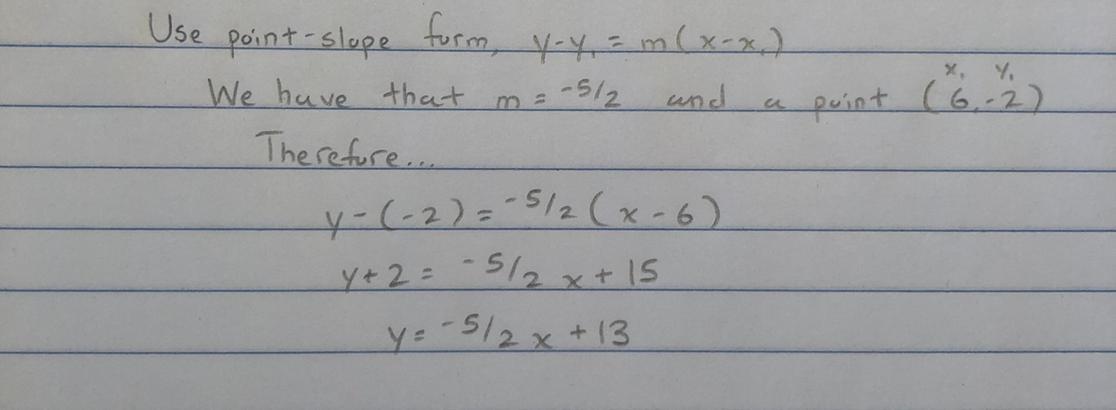 Use point-slope form, y-y₁ = m(x-x₁)
x₁ y₁
We have that m = -5/2 and a point (6,-2)
Therefore...
y-(-2) = -5/2(x-6)
y+2 = -5/2 x + 15
y = -5/2 x + 13